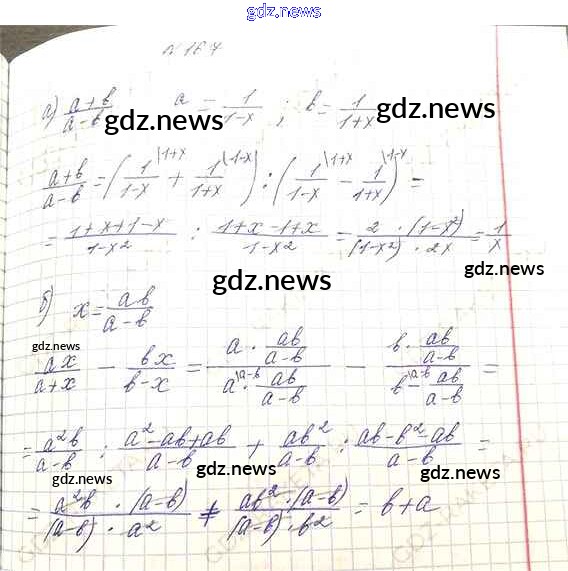 gdz.news
N 167
а) (a+b)/(a-b)   a = 1/(1-x) ; b = 1/(1+x)
gdz.news gdz.news
(a+b)/(a-b) = (1/(1-x) |1+x + 1/(1+x) |1-x) : (1/(1-x) |1+x - 1/(1+x) |1-x) =
= (1+x+1-x)/(1-x²) : (1+x-1+x)/(1-x²) = (2 · (1-x²))/((1-x²) · 2x) = 1/x
gdz.news
gdz.news
б) x = ab/(a-b)
gdz.news gdz.news
ax/(a+x) - bx/(b-x) = (a · ab/(a-b))/(a |a-b · ab/(a-b)) - (b · ab/(a-b))/(b |a-b - ab/(a-b)) =
= a²b/(a-b) : (a²-ab+ab)/(a-b) + ab²/(a-b) : (ab-b²-ab)/(a-b) =
gdz.news gdz.news gdz.news
= (a²b · (a-b))/((a-b) · a²) + (ab² · (a-b))/((a-b) · b²) = b+a